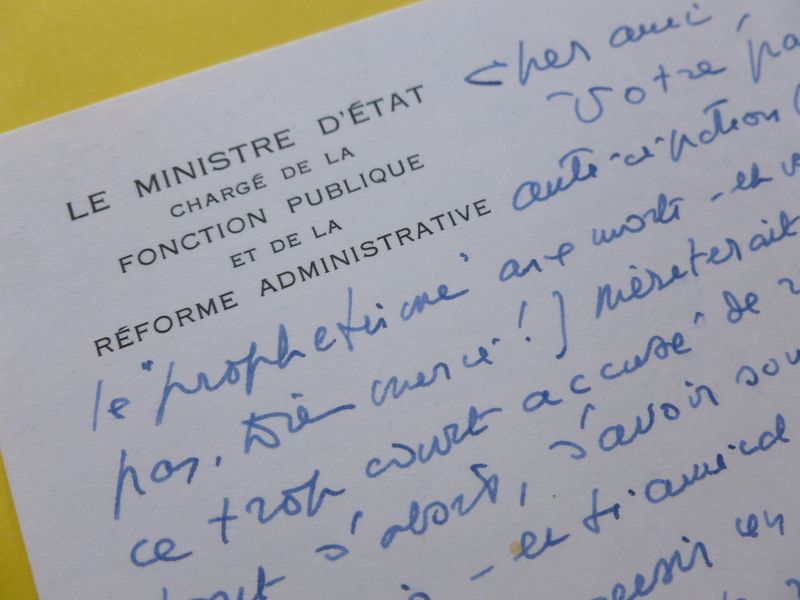 LE MINISTRE D'ÉTAT
CHARGÉ DE LA
FONCTION PUBLIQUE
ET DE LA
RÉFORME ADMINISTRATIVE
Cher ami,
Votre
anticipation
le "prophétisme" aux morts - en
pas, Dieu merci!) mériterait
ce trop court accusé de
tout d'abord, d'avoir
- en
un